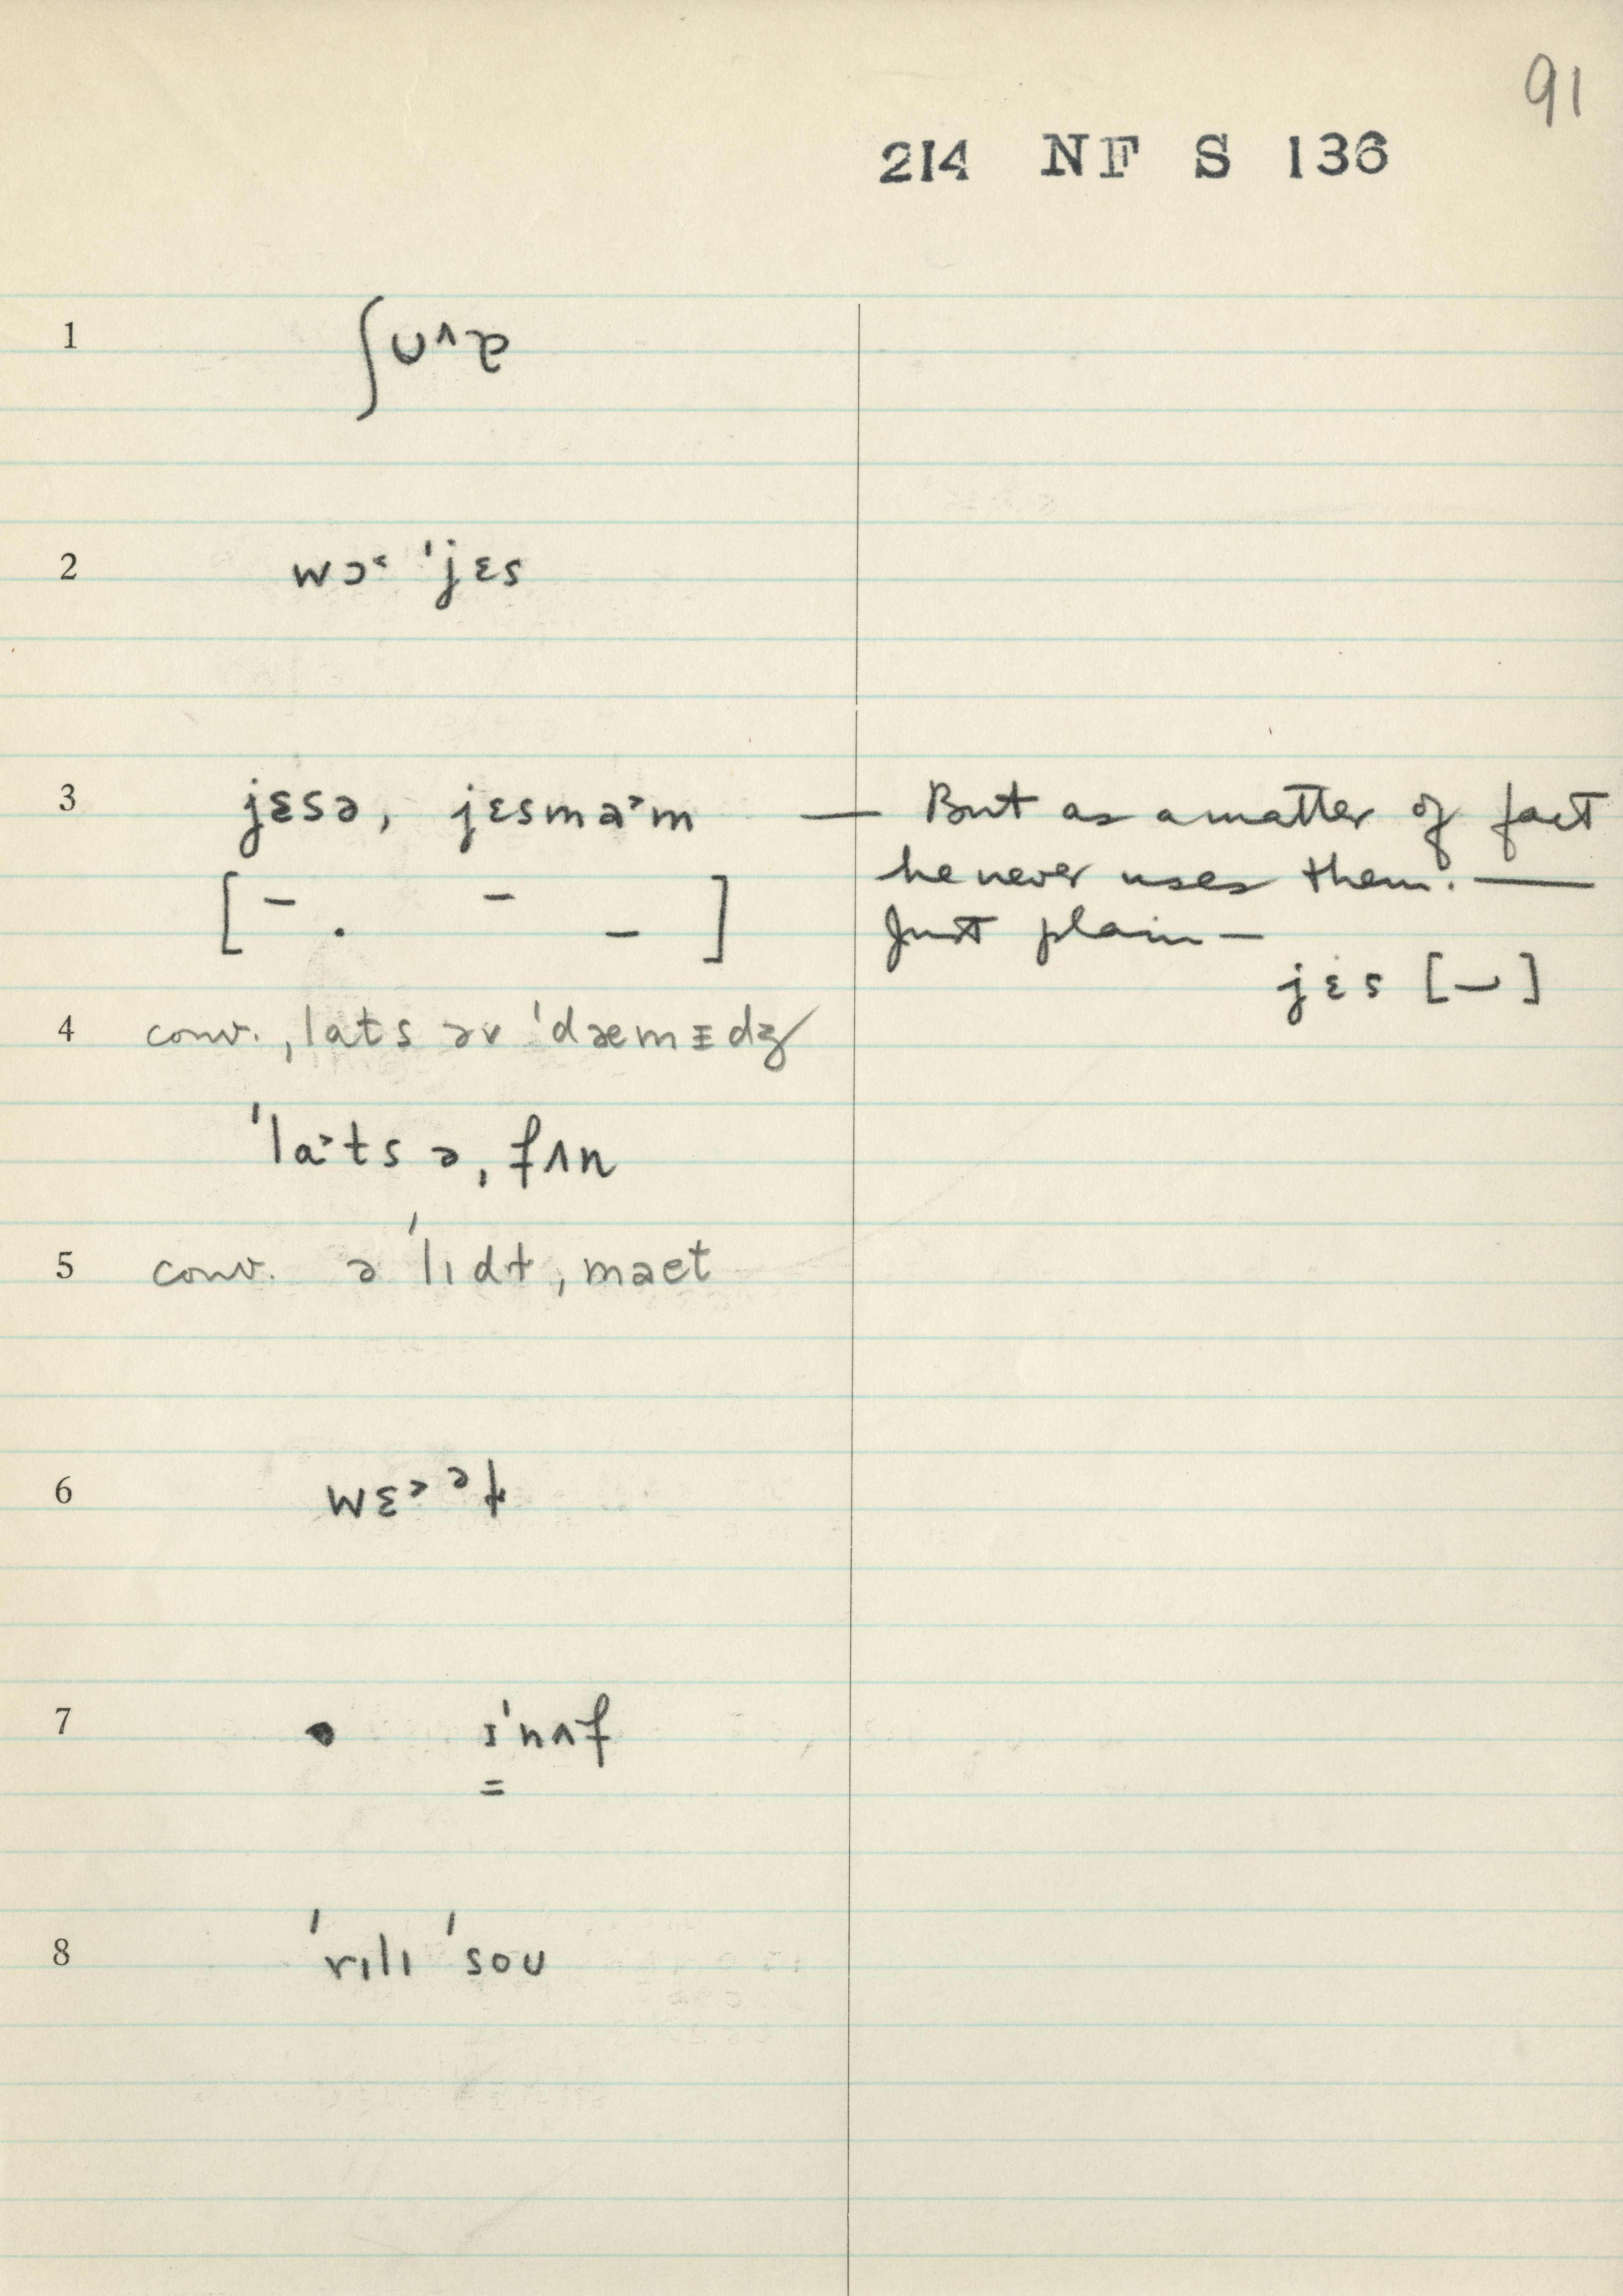 91
214 NF S 136
1 ʃᴜ^ɚ
2 wɔ˂ ˈjɛs
3 jɛsə, jɛsmə˃m — But as a matter of fact
he never uses them. —
[– . – –] Just plain –
jɛs [–⌣]
4 conv. ˌlɑts əv ˈdæmɪdʒ
ˈlɑ˃ts əˌfʌn
5 conv. ə ˈlɪdɫˌmæt
6 wɛ˃ᵊɫ
7 • ɪˈnʌf
=
8 ˈrɪlɪ ˈsoᴜ